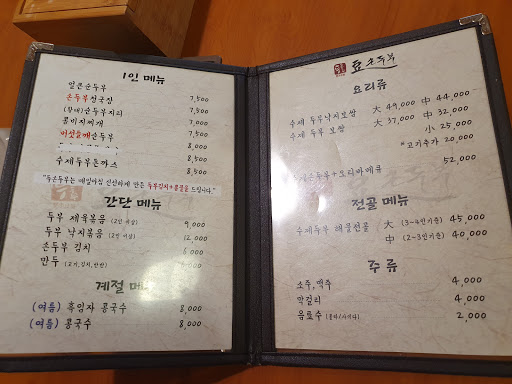 1인 메뉴
얼큰순두부 7,500
손두부청국장 7,500
(황태)순두부지리 7,500
콩비지찌개 7,500
버섯들깨순두부 8,500
8,500
수제두부돈까스 8,500
간단 메뉴
두부 제육볶음 (2인 이상) 9,000
두부 낙지볶음 (2인 이상) 12,000
손두부 김치 6,000
만두 (고기,김치,반반) 6,000
계절 메뉴
(여름) 흑임자 콩국수 8,000
(여름) 콩국수 8,000
효손두부
요리류
수제 두부낙지보쌈 大 49,000 中 44,000
수제 두부 보쌈 大 37,000 中 32,000
小 25,000
*고기추가 20,000
손두부+오리바베큐 52,000
전골 메뉴
수제두부 해물전골 大 (3~4인기준) 45,000
中 (2~3인기준) 40,000
주 류
소주,맥주 4,000
막걸리 4,000
음료수 (콜라/사이다) 2,000